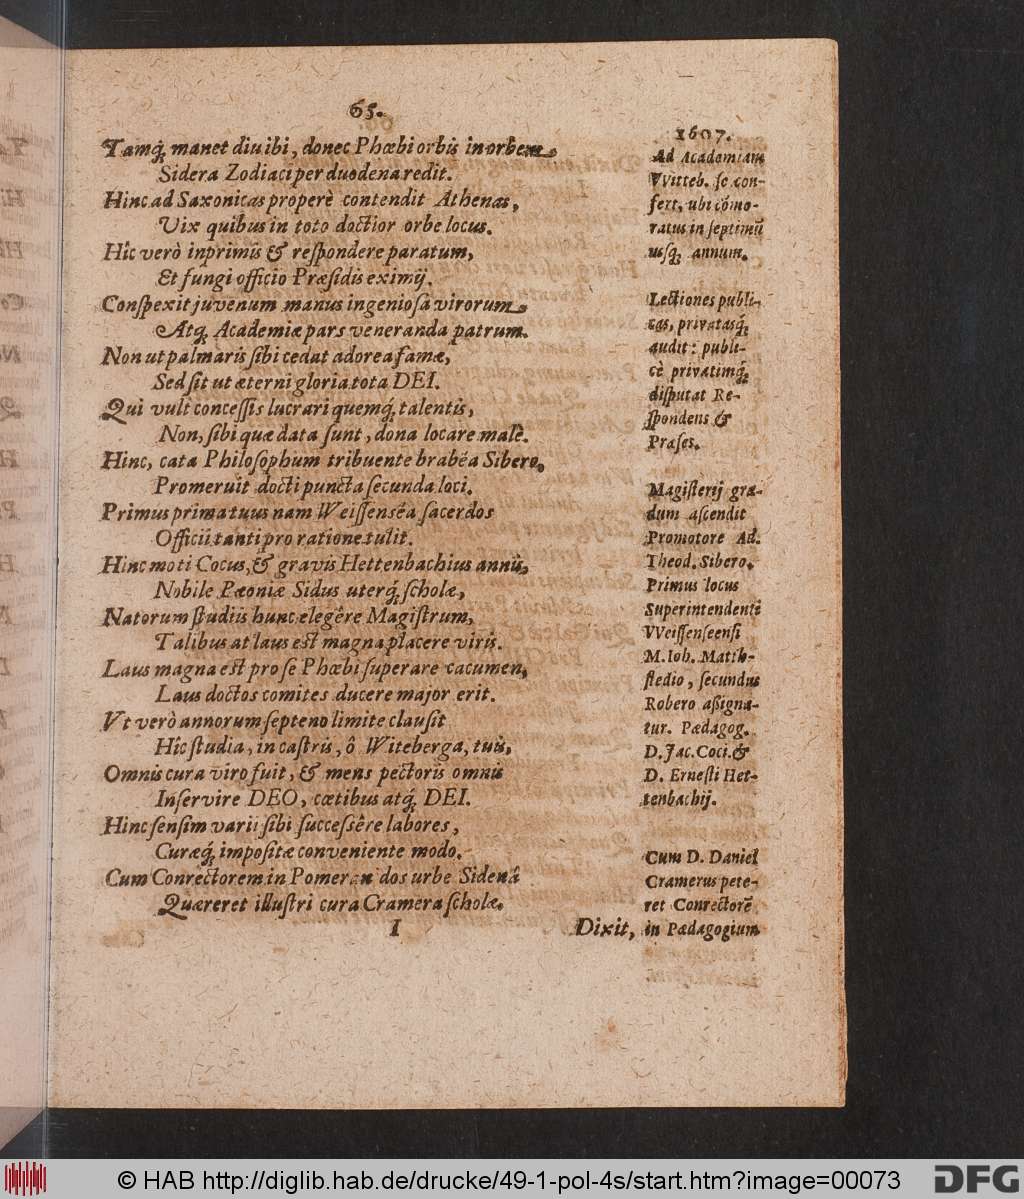 65.
Tamq́; manet diu ibi, donec Phœbi orbis in orbem
Sidera Zodiaci per duodena redit.
Hinc ad Saxonicas properè contendit Athenas,
Vix quibus in toto doctior orbe locus.
Hîc verò inprimis & reſpondere paratum,
Et fungi officio Præſidis eximij.
Conſpexit juvenum manus ingenioſa virorum
Atq́; Academiæ pars veneranda patrum.
Non ut palmaris ſibi cedat adorea famæ,
Sed ſit ut æterni gloria tota DEI.
Qui vult conceſſis lucrari quemq́; talentis,
Non, ſibi quæ data ſunt, dona locare malè.
Hinc, cata Philoſophum tribuente brabéa Sibero,
Promeruit docti puncta ſecunda loci.
Primus prima tuus nam Weiſſenſéa ſacerdos
Officii tanti pro ratione tulit.
Hinc moti Cocus, & gravis Hettenbachius annis,
Nobile Pæoniæ Sidus uterq́; ſcholæ,
Natorum ſtudiis hunc elegêre Magiſtrum,
Talibus at laus eſt magna placere viris.
Laus magna eſt pro ſe Phœbi ſuperare cacumen,
Laus doctos comites ducere major erit.
Vt verò annorum ſepteno limite clauſit
Hîc ſtudia, in caſtris, ô Witeberga, tuis,
Omnis cura viro fuit, & mens pectoris omnis
Inſervire DEO, cœtibus atq́; DEI.
Hinc ſenſim varii ſibi ſucceſſêre labores,
Curæq́; impoſitæ conveniente modo.
Cum Conrectorem in Pomeran dos urbe Sidenâ
Quæreret illuſtri cura Cramera ſcholæ.
I
Dixit,
1607.
Ad Academiam
VVitteb. ſe con-
fert, ubi cõmo-
ratus in ſeptimũ
uſq́; annum.
Lectiones publi-
cas, privatasq́;
audit: publi-
cè privatimq́;
diſputat Re-
ſpondens &
Præſes.
Magiſterij gra-
dum aſcendit
Promotore Ad.
Theod. Sibero.
Primus locus
Superintendenti
VVeiſſenſeenſi
M. Ioh. Matth-
ſtedio, ſecundus
Robero aſsigna-
tur. Pædagog.
D. Jac. Coci. &
D. Erneſti Het-
tenbachij.
Cum D. Daniel
Cramerus pete-
ret Conrectorẽ
in Pædagogium
© HAB http://diglib.hab.de/drucke/49-1-pol-4s/start.htm?image=00073
DFG